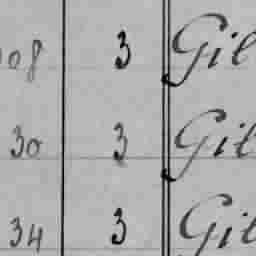 08 3 Gil
30 3 Gil
34 3 Gil